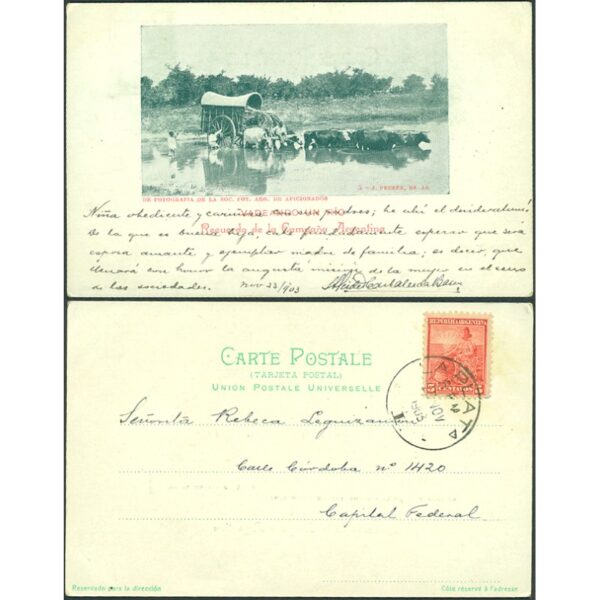 DE FOTOGRAFIA DE LA SOC. FOT. ARG. DE AFICIONADOS
5 - J. PEUSER, BS. AS.
VADEANDO UN RIO
Recuerdo de la Campaña Argentina
Niña obediente y cariñosa con sus padres; he ahí el desideratum
De la que es buena hija, cabe fundadamente esperar que será
esposa amante y ejemplar madre de familia; es decir, que
llenará con honor la augusta misión de la mujer en el seno
de las sociedades.
Nov 23/903
CARTE POSTALE
(TARJETA POSTAL)
UNION POSTALE UNIVERSELLE
REPUBLICA ARGENTINA
5 CENTAVOS 5
LA PLATA
NOV
1903
1
Señorita Rebeca Leguizamón
Calle Córdoba nº 1420
Capital Federal
Reservado para la dirección
Côté réservé à l'adresse